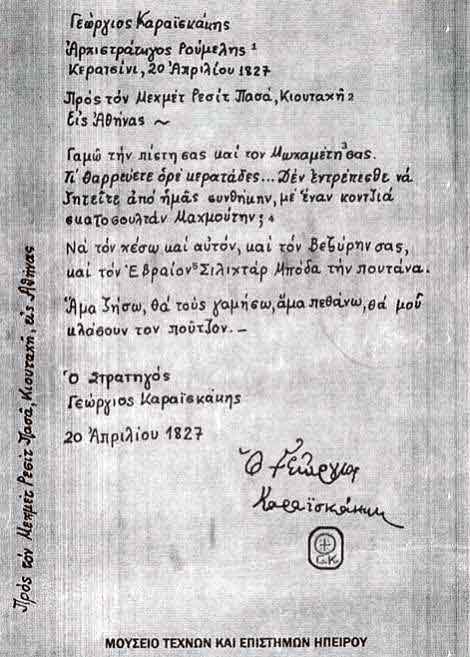 Γεώργιος Καραϊσκάκης
Ἀρχιστράτηγος Ρούμελης 1
Κερατσίνι, 20 Ἀπριλίου 1827
Πρός τόν Μεχμέτ Ρεσίτ Πασά, Κιουταχῆ 2
Εἰς Ἀθήνας ~
Γαμῶ τήν πίστη σας καί τον Μωχαμέτη 3 σας.
Τί θαρρεύετε ὀρέ κερατάδες... Δέν ἐντρέπεσθε νά
ζητεῖτε ἀπό ἡμᾶς συνθήκην, μέ ἕναν κοντζιά
σκατοσουλτάν Μαχμούτην; 4
Νά τόν χέσω καί αὐτόν, καί τόν Βεζύρην σας,
καί τόν Ἑβραίον 5 Σιλιχτάρ Μπόδα τήν πουτάνα.
Ἅμα ζήσω, θά τούς γαμήσω, ἅμα πεθάνω, θά μοῦ
κλάσουν τον πούτζον. –
Ὁ Στρατηγός
Γεώργιος Καραϊσκάκης
20 Ἀπριλίου 1827
Ὁ Γεώργιος
Καραϊσκάκης
Γ.Κ
Πρός τόν Μεχμέτ Ρεσίτ Πασᾶ, Κιουταχῆ, εἰς Ἀθήνας
ΜΟΥΣΕΙΟ ΤΕΧΝΩΝ ΚΑΙ ΕΠΙΣΤΗΜΩΝ ΗΠΕΙΡΟΥ